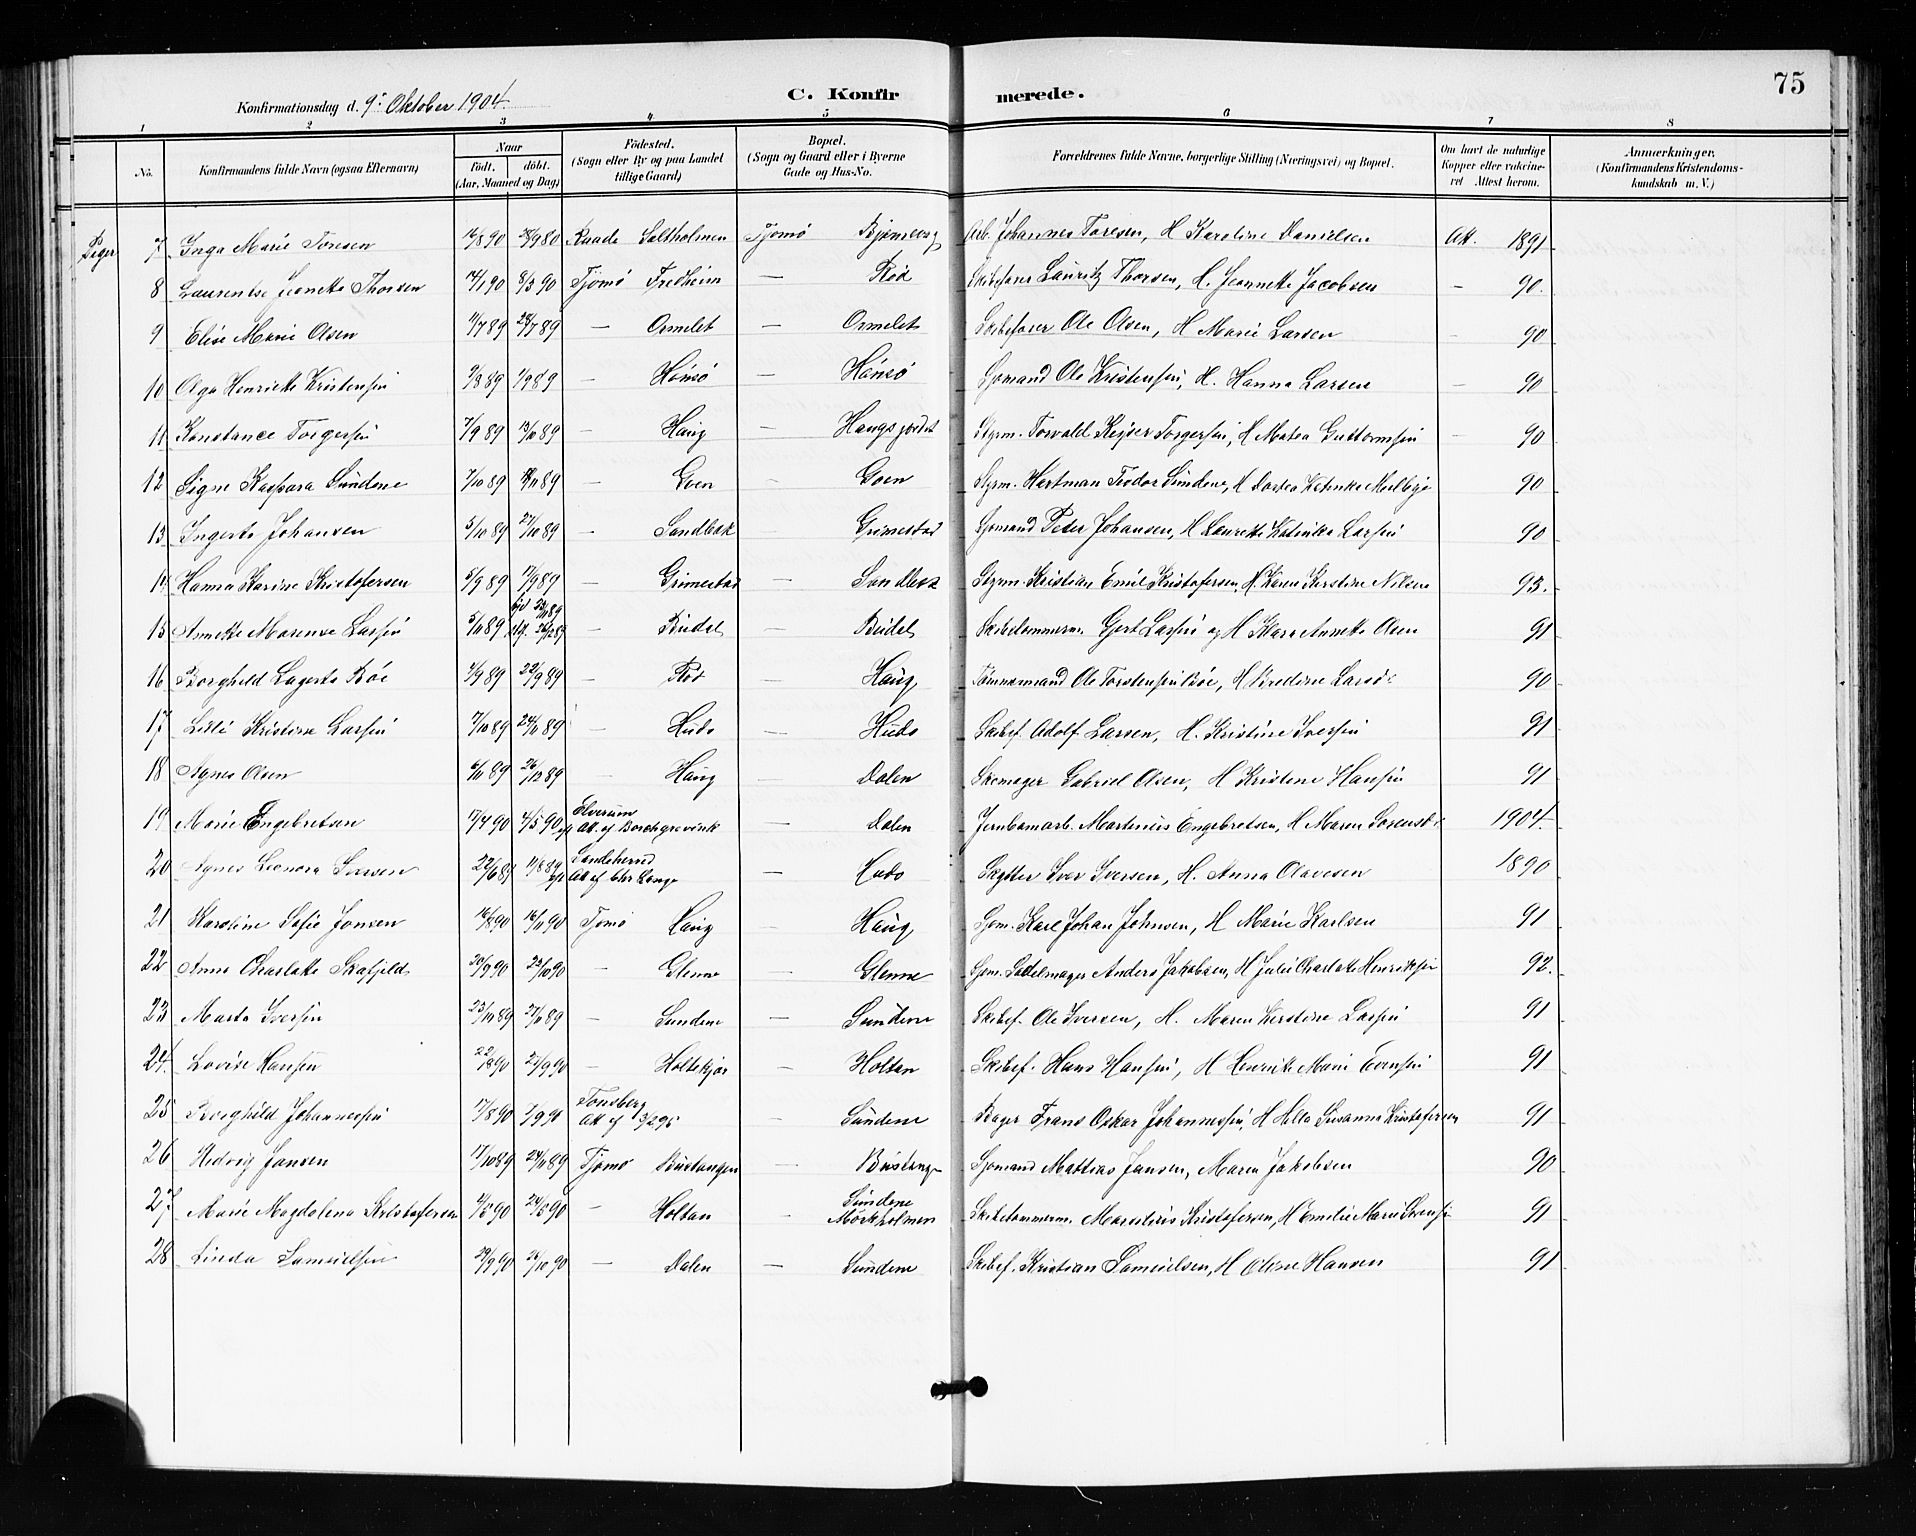 75
Konfirmationsdag d. 9de Oktober 1904.
C. Konfir merede.
1 2 3 4 5 6 7 8
No. Konfirmandens fulde Navn (ogsaa Efternavn) Naar født. døbt. (Aar, Maaned og Dag) Fødested. (Sogn eller By og paa Landet tillige Gaard) Bopæl. (Sogn og Gaard eller i Byerne Gade og Hus-No. Forældrenes fulde Navne, borgerlige Stilling (Næringsvei) og Bopæl. Om havt de naturlige Kopper eller vakcineret Attest herom. Anmærkninger. (Konfirmandens Kristendomskundskab m. V.)
Piger 7 Inga Marie Toresen 16/8 90 28/9 80 Raade Saltholmen Tjømø Bjørnevag Arb. Johannes Toresen, H Karoline Danielsen Att. 1891
8 Laurentse Jeanette Thorsen 14/1 90 8/3 90 Tjømø Fredheim — Rød Skibsfører Lauritz Thorsen, H. Jeannette Jacobsen – 90.
9 Elise Marie Olsen 11/7 89 28/7 89 — Ormelet — Ormelet Skibsfører Ole Olsen, H Marie Larsen – 90
10 Olga Henriette Kristensen 9/8 89 1/9 89 — Hønsø — Hønsø Sømand Ole Kristensen, H. Hanna Larsen – 90
11 Konstance Torgersen 7/9 89 13/10 89 — Haug — Haugsjordet Styrm. Torvald Keyser Torgersen, H Matea Guttormsen – 90
12 Signe Kaspara Sundene 7/10 89 89 — Goen – Goen Styrm. Hartman Teodor Sundene, H Dortea Katinka Melbye 90
13 Ingerta Johansen 5/10 89 27/10 89 — Sandbæk Grimestad Sjømand Peter Johansen, H Laurette Katinka Larsen 90
14 Hanna Karine Kristofersen 5/9 89 17/9 89 — Grimestad — Sandbæk Styrm. Kristian Emil Kristofersen, H. Karen Kirstine Nilsen 93.
15 Annette Marense Larsen 5/11 89 — Budal — Budal Skibstømmerm. Gert Larsen og H Karen Annette Olsen 91
16 Borghild Lagerta Bøe 1/9 89 22/9 89 — Rød Haug Tømmermand Ole Torstensen Bøe, H Bredine Larsd. 90
17 Lilli Kristine Larsen 7/10 89 24/11 89 — Hudø — Hudø Skibsf. Adolf Larsen, H. Kristine Iversen 91
18 Agnes Olsen 6/11 89 26/12 89 Haug — Dalen Skomager Gabriel Olsen, H Kristine Hansen 91
19 Marie Engebretsen 17/4 90 4/5 90 Elverum Att. af Borchgrevink — Dalen Jernbanearb. Martinius Engebretsen, H Maren Sørensd. 1904.
20 Agnes Leonora Iversen 22/6 89 11/8 89 Sandeherred Att af Chr Lange — Hudø Skytter Iver Iversen, H. Anna Olavesen 1890
21 Karoline Sofie Jonsen 16/8 90 16/11 90 Tjømø Haug — Haug Sjøm. Karl Johan Johnsen, H Marie Karlsen 91
22 Anna Charlotte Skafjeld 20/9 90 23/10 90 — Glenne — Glenne Sjøm. Sadelmager Anders Jakobsen, H Julie Charlotte Henriksen 92.
23 Marta Iversen 23/10 89 27/11 89 — Sundene Sundene Skibsf. Ole Iversen, H. Maren Kirstine Larsen 91
24. Lovise Hansen 22/8 90 21/9 90 – Holtekjær — Holtan Skibsf. Hans Hansen, H Henrikke Marie Evensen 91
25 Borghild Johannessen 17/8 90 7/9 90 Tønsberg Att af 3/2 95 — Sundene Bager Frans Oskar Johannessen, H Hilla Susanna Kristofersen 91
26 Hedvig Jansen 17/10 89 24/11 89 Tjømø Bustangen — Bustange Sjømand Mattias Jansen, Maren Jakobsen 90
27 Marie Magdalena Kristofersen 4/5 90 24/5 90 — Holtan — Sundene Mørkholmen Skibstømmerm. Marelius Kristofersen, H Emilie Marie Sørensen 91
28 Linda Samuelsen 29/9 90 26/10 90 — Dalen — Sundene Skibsf. Kristian Samuelsen, H Oline Hansen 91